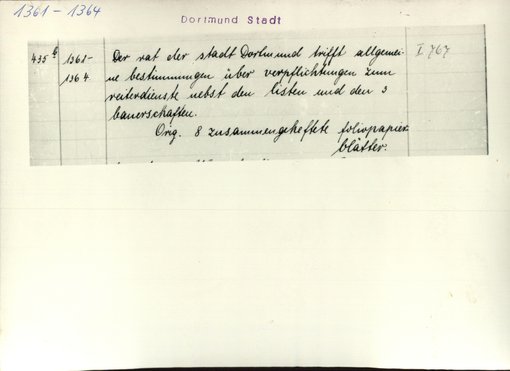 1361 - 1364
Dortmund Stadt
435 b
1361-
1364
Der rat der stadt Dortmund trifft allgemei-
ne bestimmungen über verpflichtungen zum
reiterdienste nebst den listen und den 3
bauerschaften.
Orig. 8 zusammengeheftete foliopapier
blätter.
I 767